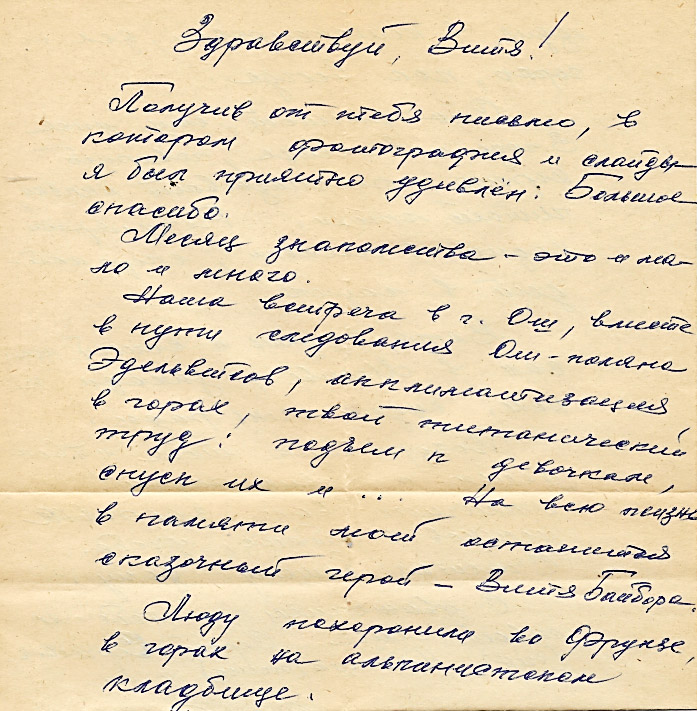 Здравствуй, Витя!
Получив от тебя письмо, в
котором фотография и слайды
я был приятно удивлён. Большое
спасибо.
Месяц знакомства – это и ма-
ло и много.
Наша встреча в г. Ош, вместе
в пути следования Ош-поляна
Эдельвейсов, акклиматизация
в горах, твой титанический
труд: подъём к девочкам,
спуск их и ... На всю жизнь
в памяти моей останется
сказочный герой – Витя Байбора.
Люду похоронили во Фрунзе,
в горах на альпинистском
кладбище.